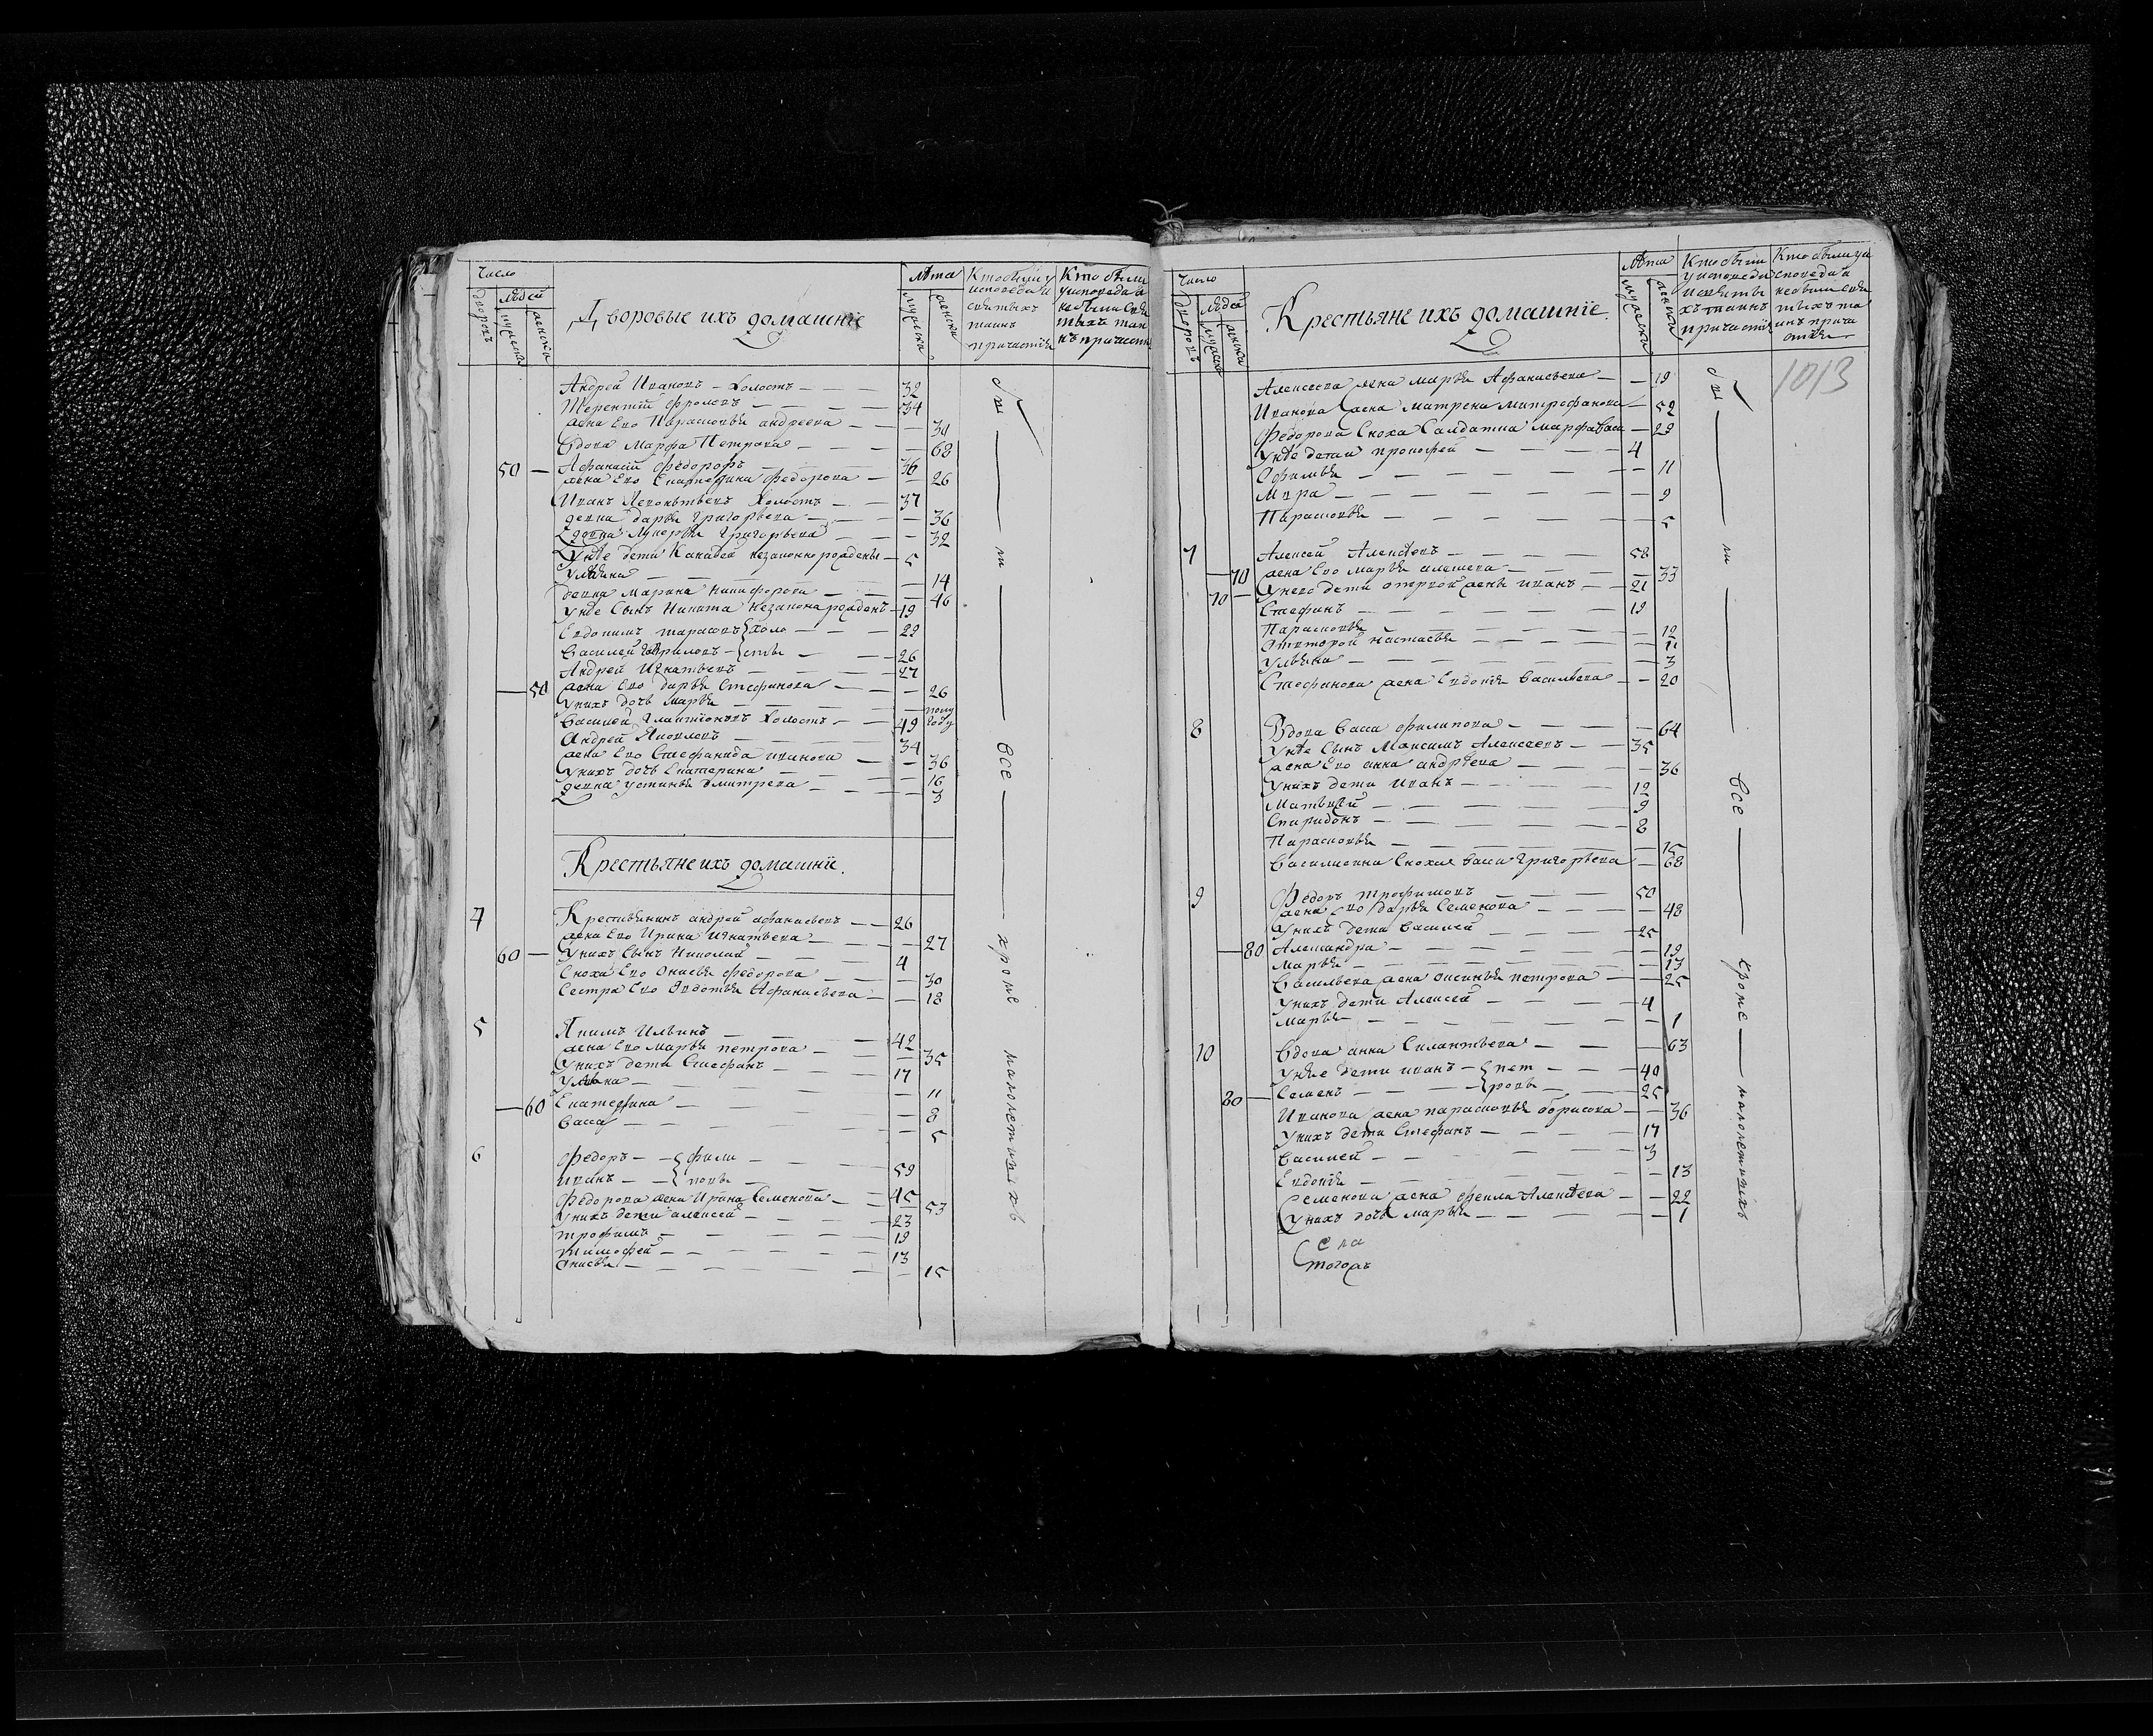 Число
Людей
дворовъ
мужеска
женска
Дворовые ихъ домашніе
Лѣта
мужеска
женска
Кто были у исповеди и святыхъ таинъ причастія
Кто были у исповеди а не были святыхъ таинъ причастн
Андрей Ивановъ — Холостъ — 32
Терентій Фроловъ — 34
жена Ево Парасковья андреева — 30
Вдова Марфа Петрова — 68
50 — Афанасій Федоровъ — 36
жена Ево Екатерина Федорова — 26
Иванъ Леонтьевъ Холостъ — 37
девка дарья Григорьева — 36
девка Лукерья Григорьева — 32
У нее дети Каллистрат незаконно рожденъ — 5
Ульяна — 14
девка Марина Никифорова — 46
У нее Сынъ Никита незаконорожденъ — 19
Евдокимъ тарасовъ холо — 29
Василей Гавриловъ сты — 26
Андрей Игнатьевъ — 27
— 50 жена Ево дарья Стефанова — 26
У нихъ дочь Марья — полугоду
Василей Холостъ — 49
Андрей Яковлевъ — 34
жена Ево Стефанида иванова — 36
У нихъ дочь Екатерина — 16
девка устинья дмитрева — 3
Крестьяне ихъ домашніе.
4 Крестьянинъ андрей афанасьевъ — 26
жена Ево Ирина Игнатьева — 27
60 — У нихъ Сынъ Николай — 4
Сноха Ево Онисья Федорова — 30
Сестра Ево Авдотья Афанасьева — 18
5 Якимъ Ильинъ — 42
жена Ево Марья петрова — 35
У нихъ дети Стефанъ — 17
Ульяна — 11
— 60 Екатерина — 8
Васса — 5
6 Федоръ — фили — 59
иванъ — повы — 45
Федорова жена Ирина Семенова — 53
У нихъ дети алексей — 23
трофимъ — 19
тимофей — 13
Онисья — 15
Все кроме малолетныхъ
Число
Людей
дворовъ
мужеска
женска
Крестьяне ихъ домашніе.
Лѣта
мужеска
женска
Кто были у исповеди и святыхъ таинъ причастія
Кто были у исповеди а не были святыхъ таинъ причастія
1013
Алексеева жена марья Афанасьева — 19
Иванова жена Матрена Митрофанова — 52
Федорова Сноха Салдатка Марфа Васи — 29
У нее дети прокофей — 4
Софилья — 11
Мавра — 9
Парасковья — 5
7 Алексей Алексѣевъ — 58
— 70 жена Ево Марья алексеева — 33
70 — У него дети от первой жены иванъ — 21
Стефанъ — 19
Парасковья — 12
От второй настасья — 11
ульяна — 3
Стефанова жена Евдокія Васильева — 20
8 Вдова Васса филипова — 64
У нее Сынъ Максимъ Алексеевъ — 35
жена Ево анна андрѣева — 36
У нихъ дети Иванъ — 12
Матвѣй — 9
Спиридонъ — 8
Парасковья — 15
Василисина Сноха Васса Григорьева — 68
9 Федоръ трофимовъ — 50
жена Ево дарья Семенова — 48
У нихъ дети Василей — 25
— 80 Александра — 19
Марья — 13
Васильева жена аксинья петрова — 25
У нихъ дети Алексей — 4
Марья — 1
10 Вдова анна Силантьева — 63
У нее дети иванъ — пет — 40
80 — Семенъ — ровы — 25
Иванова жена парасковья борисова — 36
У нихъ дети Стефанъ — 17
Василей — 3
Евдокія — 13
Семенова жена фекла Алексѣева — 22
У нихъ дочь марья — 1
Села
тогожъ
Все кроме малолетныхъ